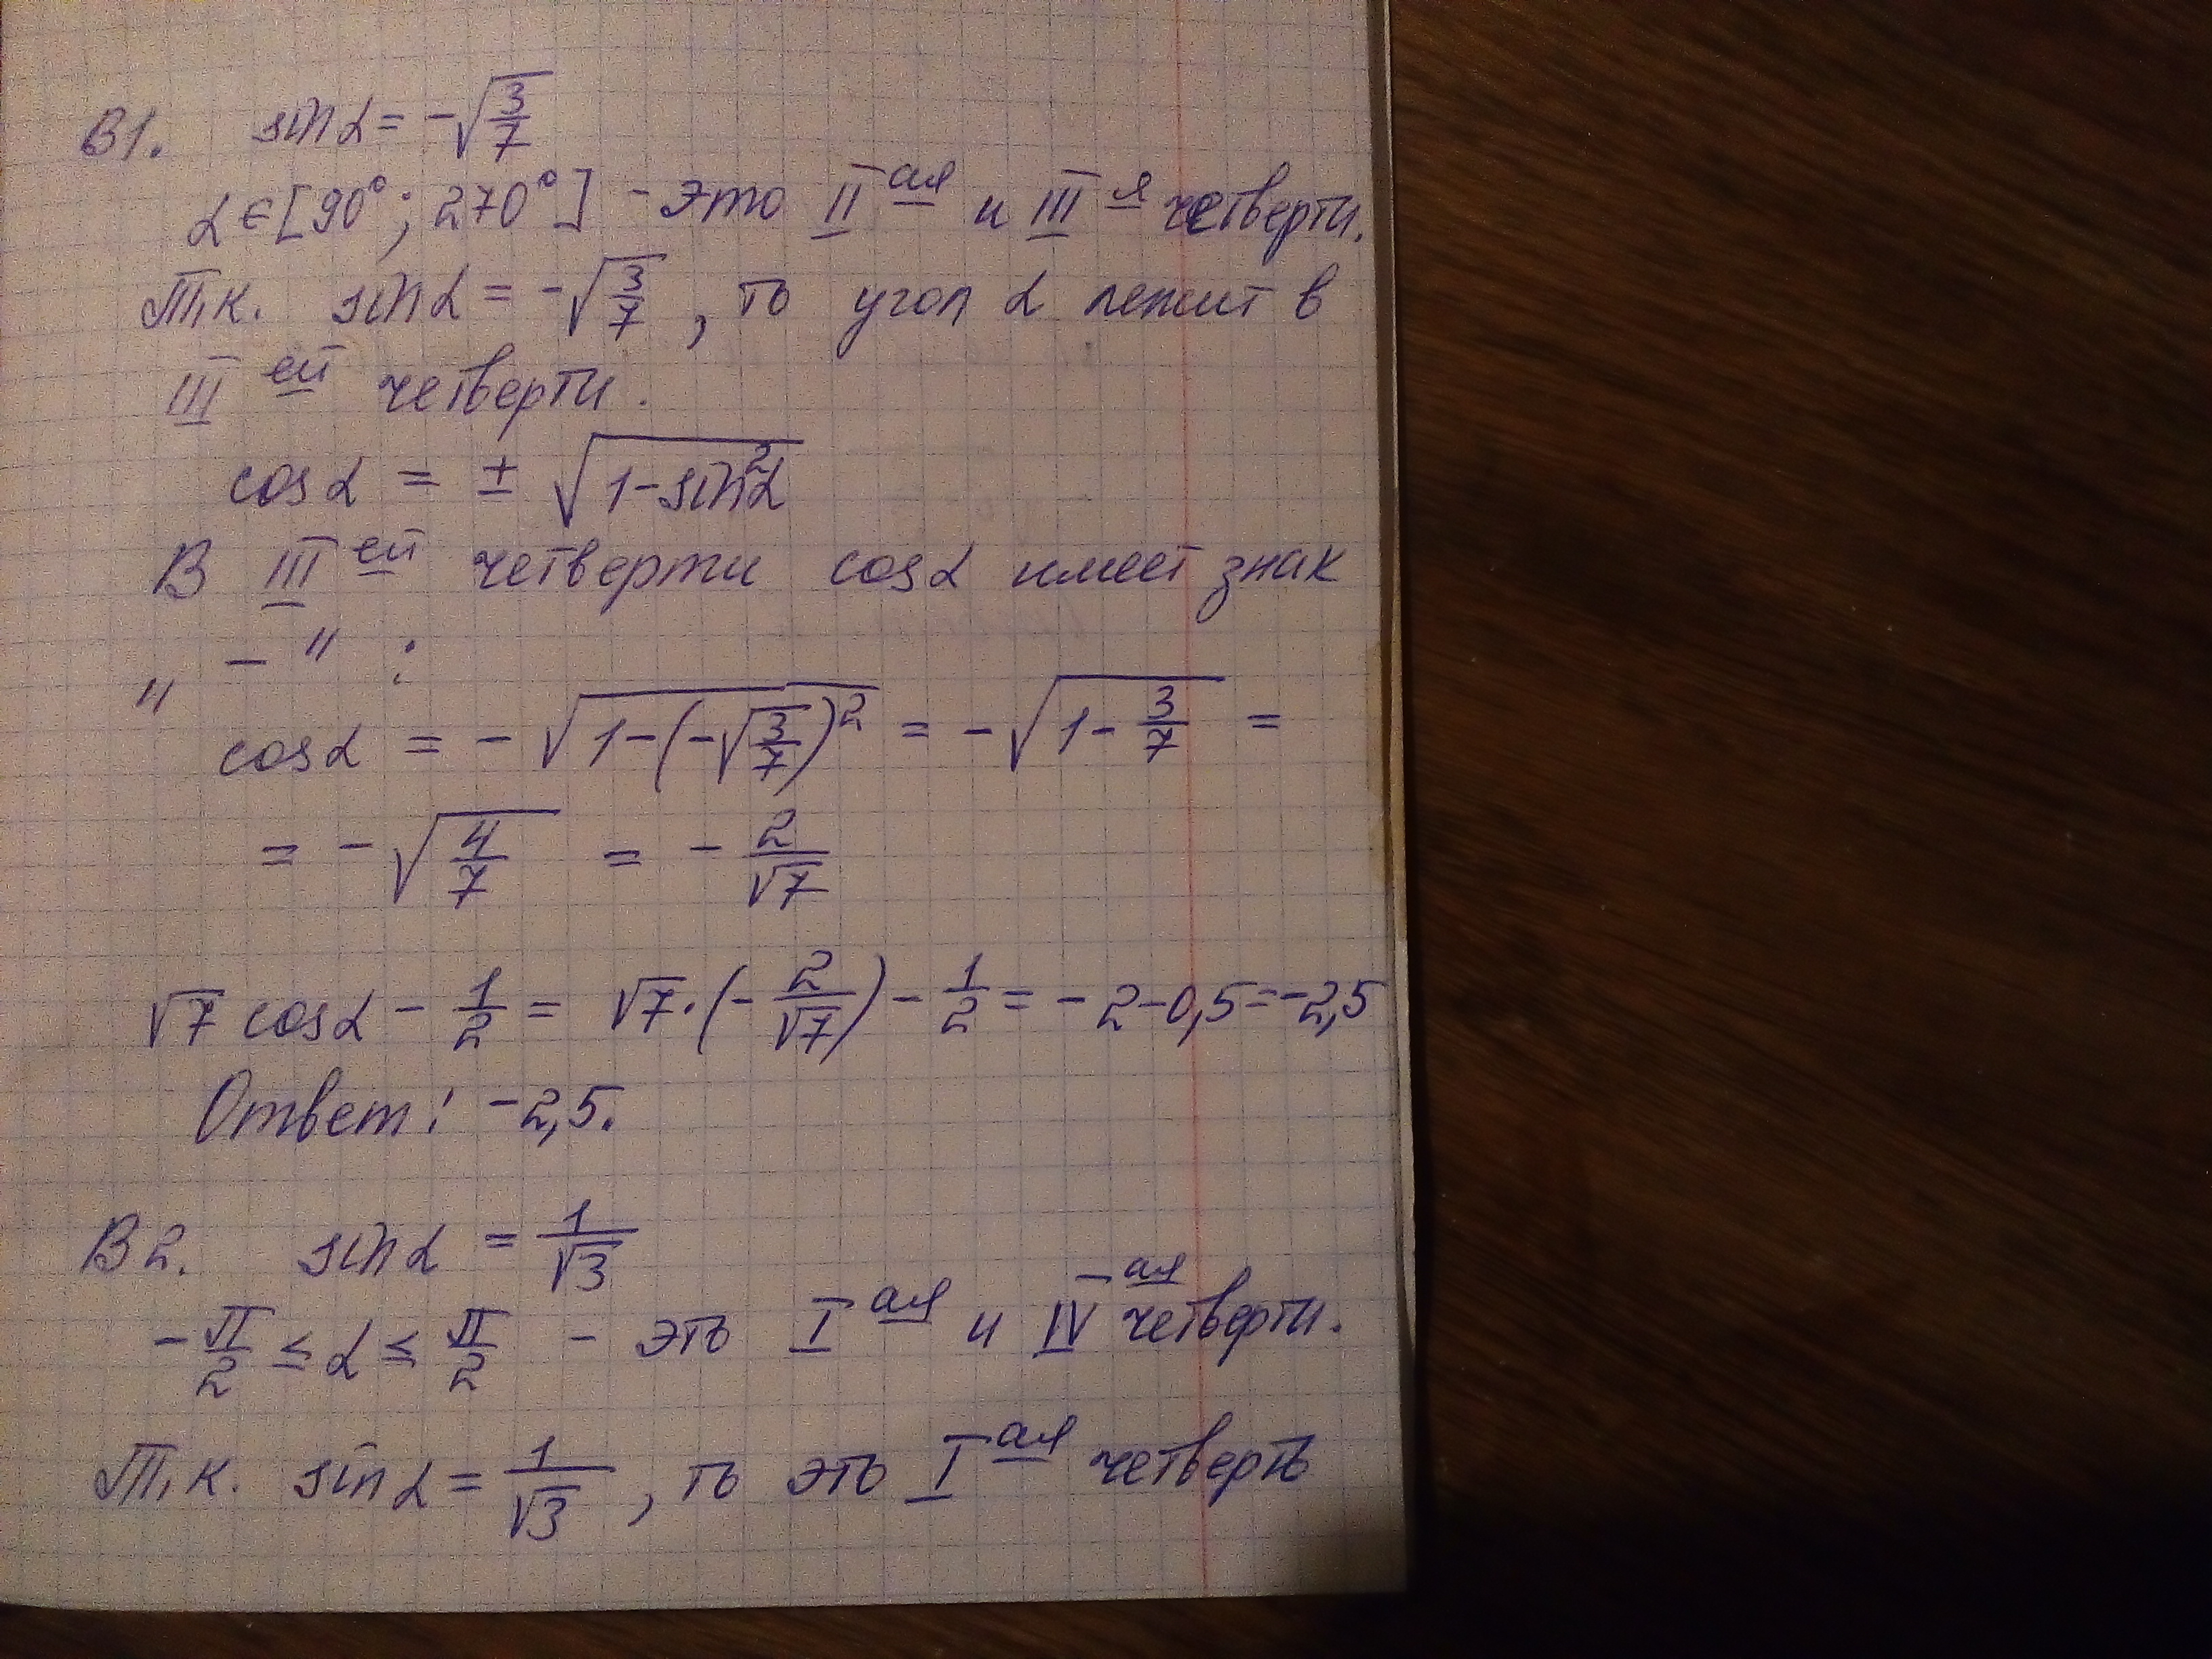 В1. sin α = -√(3/7)
α ∈ [90°; 270°] - это II ая и III я четверти.
Т.к. sin α = -√(3/7), то угол α лежит в
III ей четверти.
cos α = ± √(1 - sin²α)
В III ей четверти cos α имеет знак
„ - " :
cos α = - √(1 - (-√(3/7))²) = - √(1 - 3/7) =
= - √(4/7) = - 2/√7
√7 cos α - 1/2 = √7 · (- 2/√7) - 1/2 = - 2 - 0,5 = -2,5
Ответ: -2,5.
В2. sin α = 1/√3
- π/2 ≤ α ≤ π/2 - это I ая и IV ая четверти.
Т.к. sin α = 1/√3, то это I ая четверть